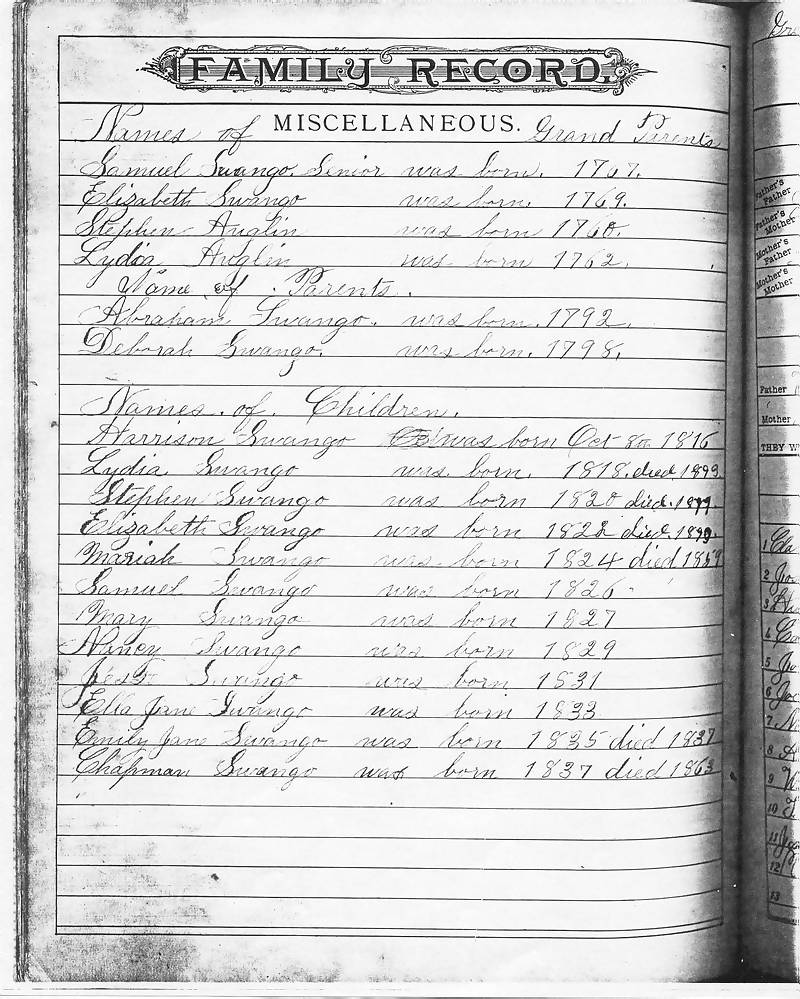 FAMILY RECORD.
MISCELLANEOUS.
Names of Grand Parents
Samuel Swango. Senior was born. 1767.
Elizabeth Swango was born. 1769.
Stephen Anglin was born 1760.
Lydia Anglin was born 1762.
Name of Parents.
Abraham Swango. was born. 1792.
Deborah Swango. was born. 1798.
Names of Children.
Harrison Swango was born Oct 8th 1816
Lydia Swango was born. 1818. died 1899.
Stephen Swango was born 1820 died.
Elizabeth Swango was born 1822 died. 1899.
Mariah Swango was born 1824 died 1859
Samuel Swango was born 1826
Mary Swango was born 1827
Nancy Swango was born 1829
Swango was born 1831
Ella Jane Swango was born 1833
Emily Jane Swango was born 1835 died 1837
Chapman Swango was born 1837 died 1863
Father's
Father
Father's
Mother
Mother's
Father
Mother's
Mother
Father
Mother
THEY W
1
2
3
4
5
6
7
8
9
10
11
12
13